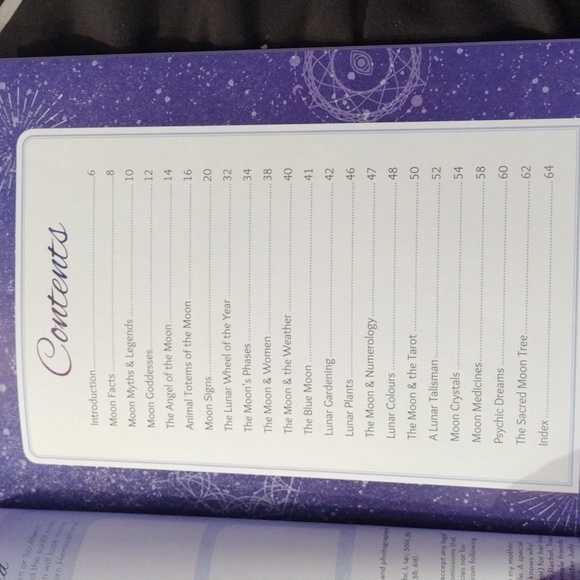 Contents
Introduction 6
Moon Facts 8
Moon Myths & Legends 10
Moon Goddesses 12
The Angel of the Moon 14
Animal Totems of the Moon 16
Moon Signs 20
The Lunar Wheel of the Year 32
The Moon's Phases 34
The Moon & Women 38
The Moon & the Weather 40
The Blue Moon 41
Lunar Gardening 42
Lunar Plants 46
The Moon & Numerology 47
Lunar Colours 48
The Moon & the Tarot 50
A Lunar Talisman 52
Moon Crystals 54
Moon Medicines 58
Psychic Dreams 60
The Sacred Moon Tree 62
Index 64